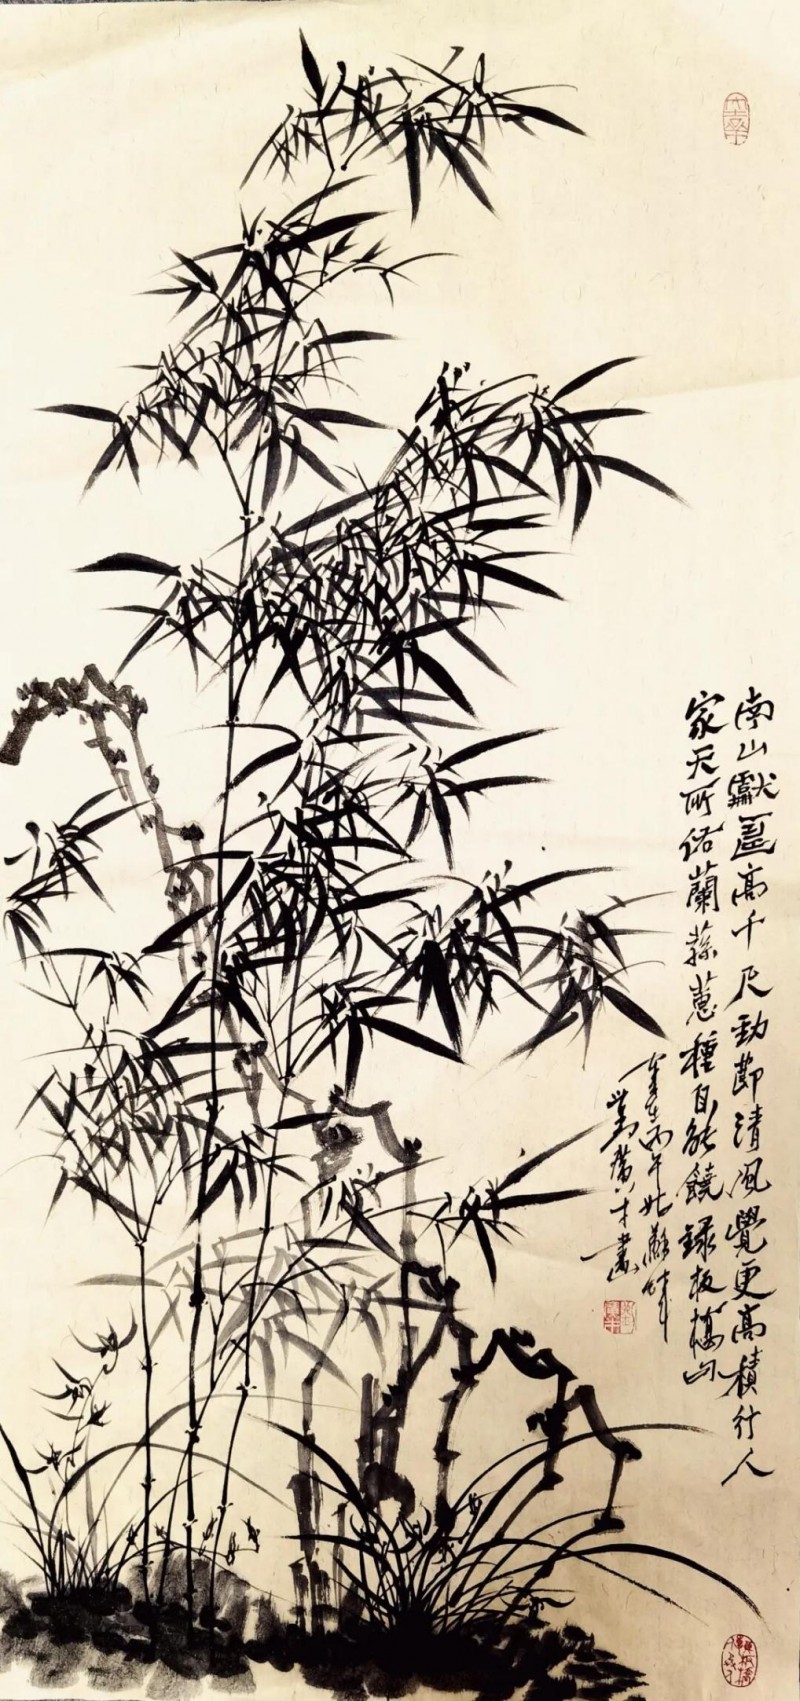 南山獻壽高千尺勁節清風覺更高積行人
家天所佑蘭蓀蕙種自能饒錄板橋句
在丙午